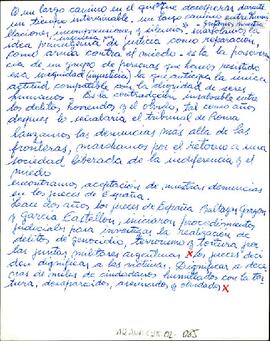 un largo camino en el que
un tiempo interminable. un largo camino
laciones, incomprensiones y silencios
idea primigenia de justicia como reparación
como arma contra el miedo: es la
cia de un grupo de personas que hemos resistido
esa iniquidad (injusticia) la que anticipa la única
actitud compatible con la dignidad de seres
humanos. Es la contradicción insalvable entre
los delitos horrendos y el olvido, tal como años
después lo señalaría el tribunal de Roma
Lanzamos las denuncias más allá de las
fronteras, marchamos por el retorno a una
sociedad liberada de la indiferencia y el
miedo
encontramos aceptación de nuestras denuncias
en los jueces de España.
Hace dos años los jueces de España Baltazar Garzón
y García Castellón, iniciaron procedimientos
judiciales para investigar la realización de
delitos de genocidio, terrorismo y tortura por
las juntas militares argentinas x los jueces deci
den dignificar a las víctimas. Dignificar a dece
nas de miles de ciudadanos humillados con la tor
tura, desaparecidos, asesinados y olvidados x